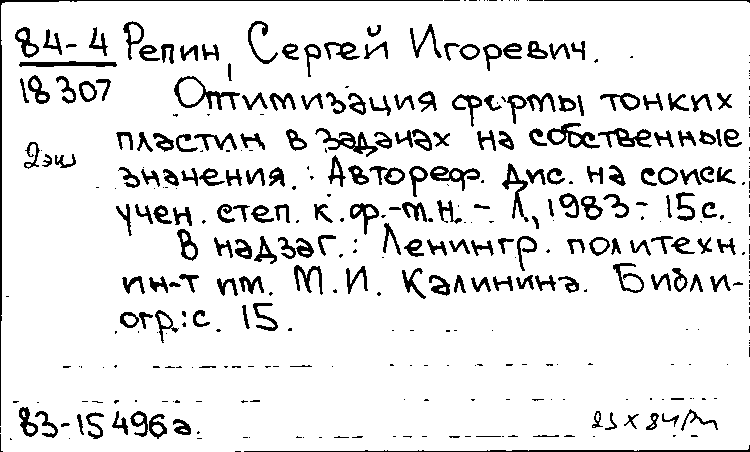 84-4 Репин, Сергей Игоревич.
18307 Оптимизация формы тонких
2 экз пластин в задачах на собственные
значения. : Автореф. дис. на соиск.
учен. степ. к.ф.-м.н. - Л., 1983 - 15 с.
В надзаг.: Ленингр. политехн.
ин-т им. М.И. Калинина. Библи-
огр.: с. 15.
83-15496а.